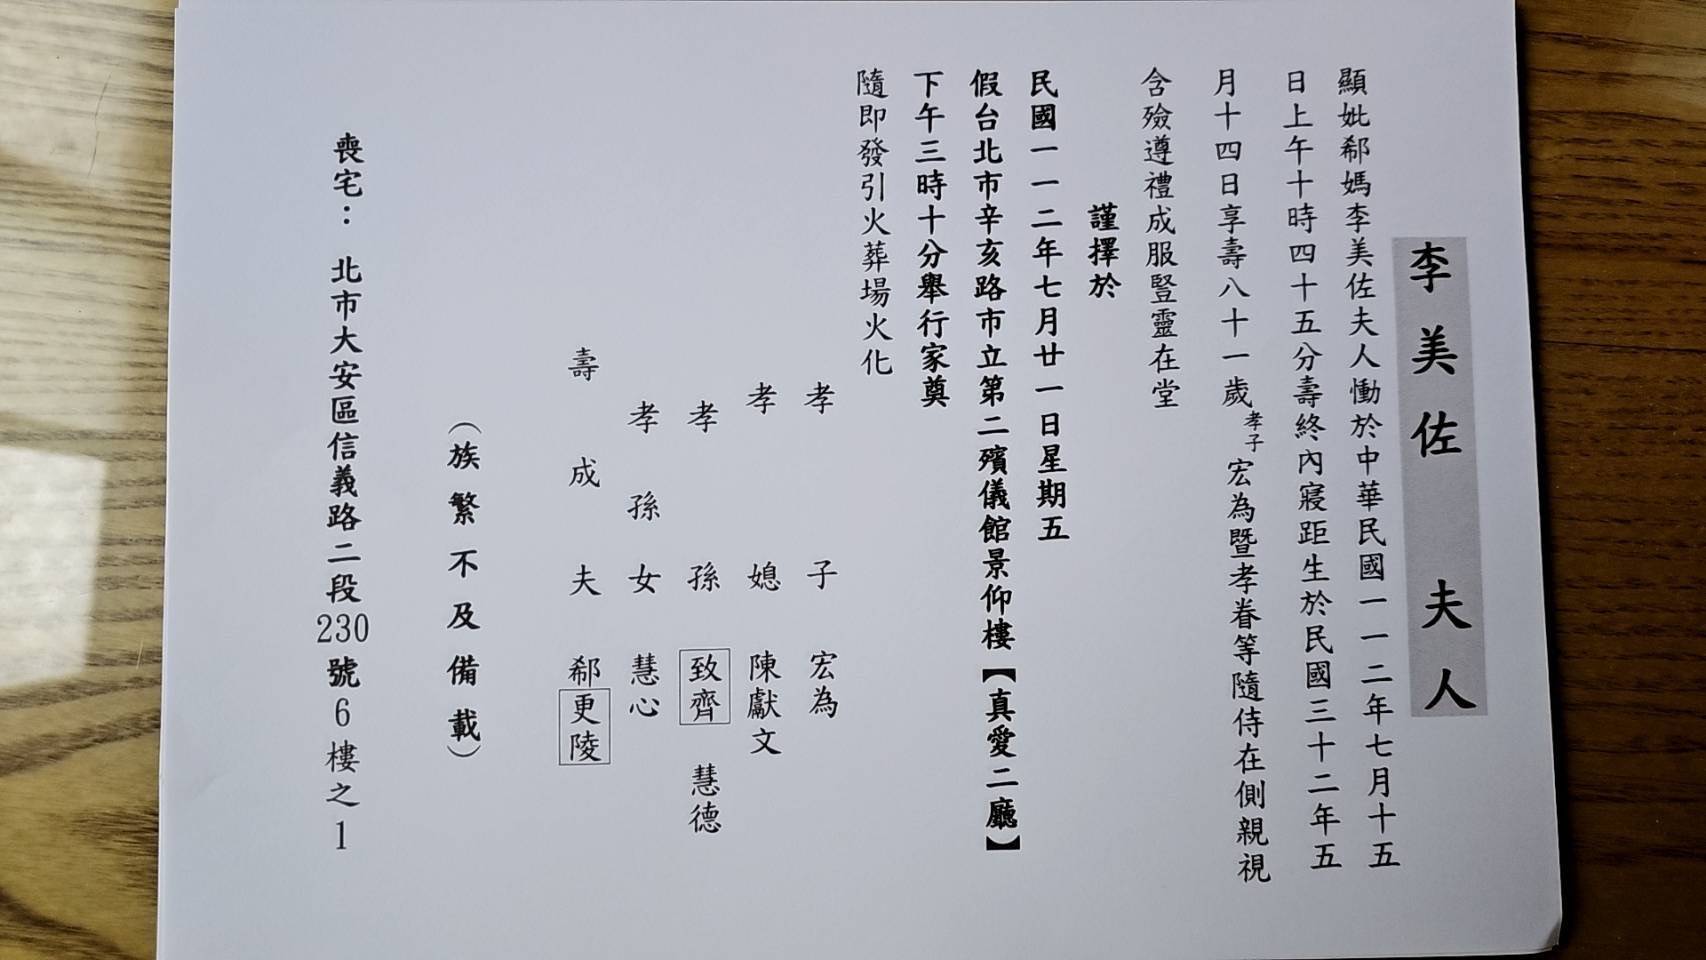 李美佐 夫人
顯妣郗媽李美佐夫人慟於中華民國一一二年七月十五
日上午十時四十五分壽終內寢距生於民國三十二年五
月十四日享壽八十一歲孝子宏為暨孝眷等隨侍在側親視
含殮遵禮成服豎靈在堂
謹擇於
民國一一二年七月廿一日星期五
假台北市辛亥路市立第二殯儀館景仰樓【真愛二廳】
下午三時十分舉行家奠
隨即發引火葬場火化
孝子 宏為
孝媳 陳獻文
孝孫 致齊 慧德
孝孫女 慧心
壽成夫 郗更陵
（族繁不及備載）
喪宅： 北市大安區信義路二段230號6樓之1